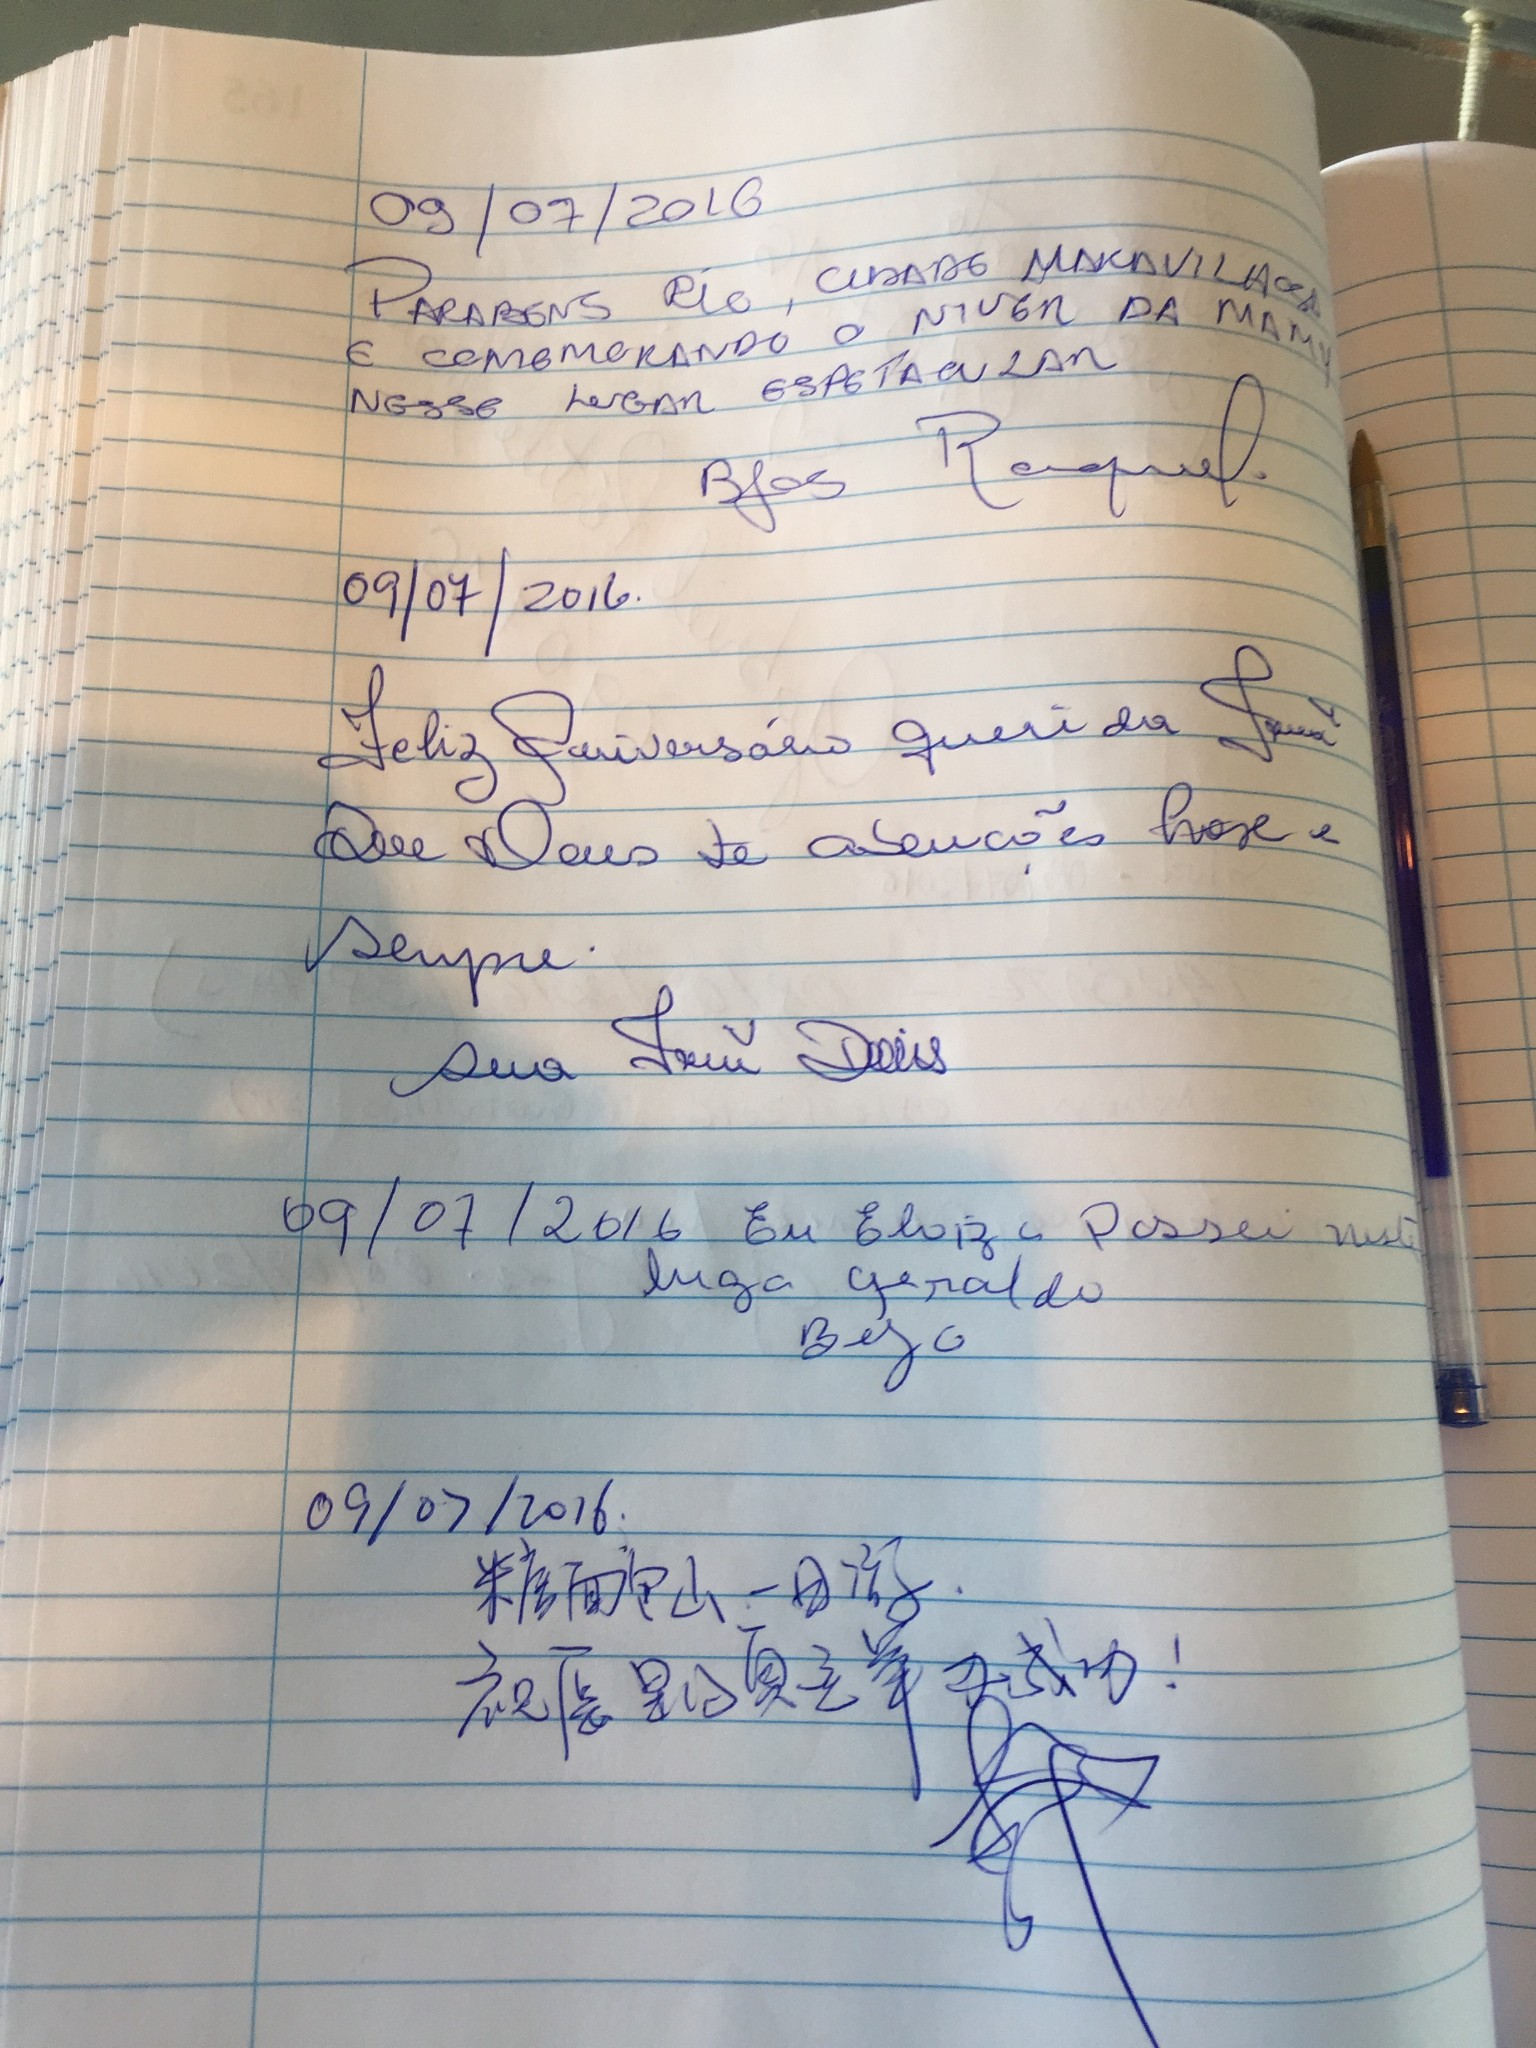 09/07/2016
PARABENS RIO, CIDADE MARAVILHOSA
E COMEMORANDO O NIVER DA MAMY
NESSE LUGAR ESPETACULAR
Bjos Raquel.
09/07/2016.
Feliz Aniversário querida Irmã
Que Deus te abençõe hoje e
sempre.
sua Irmã
09/07/2016 Eu Eloiza Passei neste
luga geraldo
Bejo
09/07/2016.
糖面包山一日游.
祝愿里约夏主举办成功!